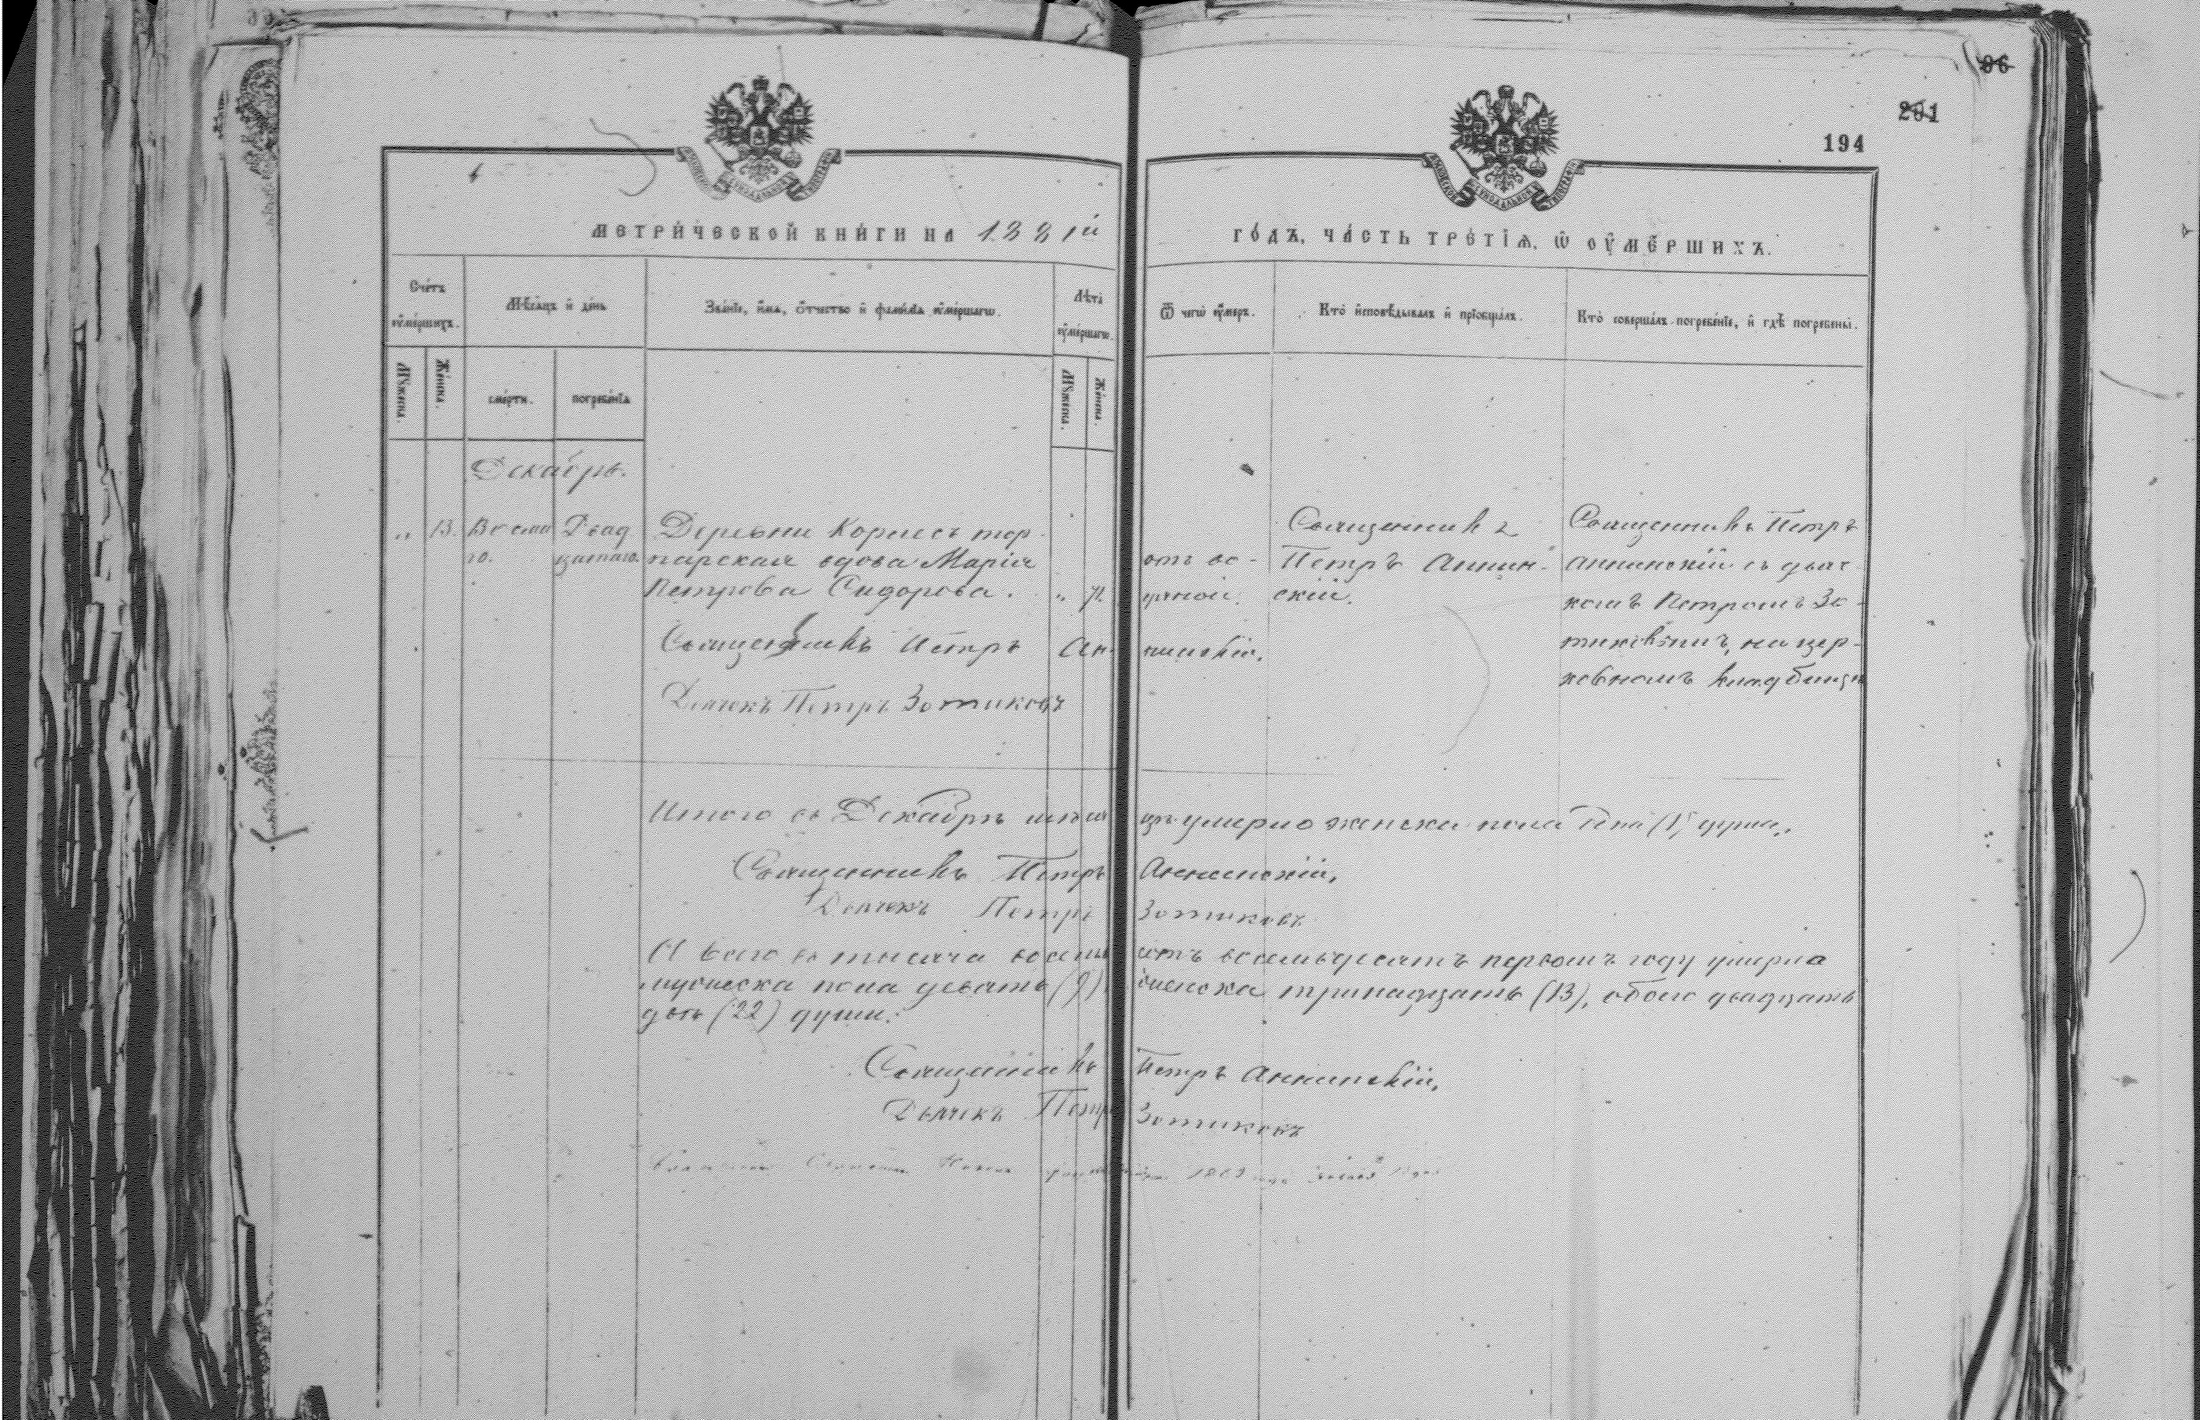 96
201
194
МЕТРИ́ЧЕСКОЙ КНИ́ГИ НА 1881й
ГО́ДЪ, ЧА́СТЬ ТРЕ́ТІѦ, Ѡ҆ ОУ҆МЕ́РШИХЪ.
Сче́тъ оу҆ме́ршихъ.
Мѣ́сѧцъ и҆ де́нь
Зва́нїе, и҆́мѧ, ѻ҆́тчество и҆ фамі́лїѧ оу҆ме́ршагѡ.
Лѣ́та оу҆ме́ршагѡ.
Ѿ чегѡ̀ оу҆́меръ.
Кто̀ и҆сповѣ́дывалъ и҆ прїобща́лъ.
Кто̀ соверша́лъ погребе́нїе, и҆ гдѣ̀ погребены̀.
Мꙋ́жеска.
Же́нска.
сме́рти.
погребе́нїѧ
Мꙋ́жеска.
Же́нска.
Декабрь.
„ 13. Восьма
го.
Двад
цатаго.
Деревни Корписъ тор-
парская вдова Марія
Петрова Сидорова. „ 71.
отъ во-
дяной.
Священникъ
Петръ Аннин-
скій.
Священникъ Петръ
Аннинскій съ дьяч-
комъ Петромъ Зо-
тиковымъ, на цер-
ковномъ кладбищѣ
Священникъ Петръ Аннинскій.
Дьячекъ Петръ Зотиковъ
Итого въ Декабрѣ мѣсяцѣ умерло женска пола одна (1) душа.
Священникъ Петръ Аннинскій.
Дьячекъ Петръ Зотиковъ
А всего въ тысяча восемьсотъ восемьдесятъ первомъ году умерло
мужеска пола девять (9), женска тринадцать (13), обоего двадцать
двѣ (22) души.
Священникъ Петръ Аннинскій.
Дьячекъ Петръ Зотиковъ